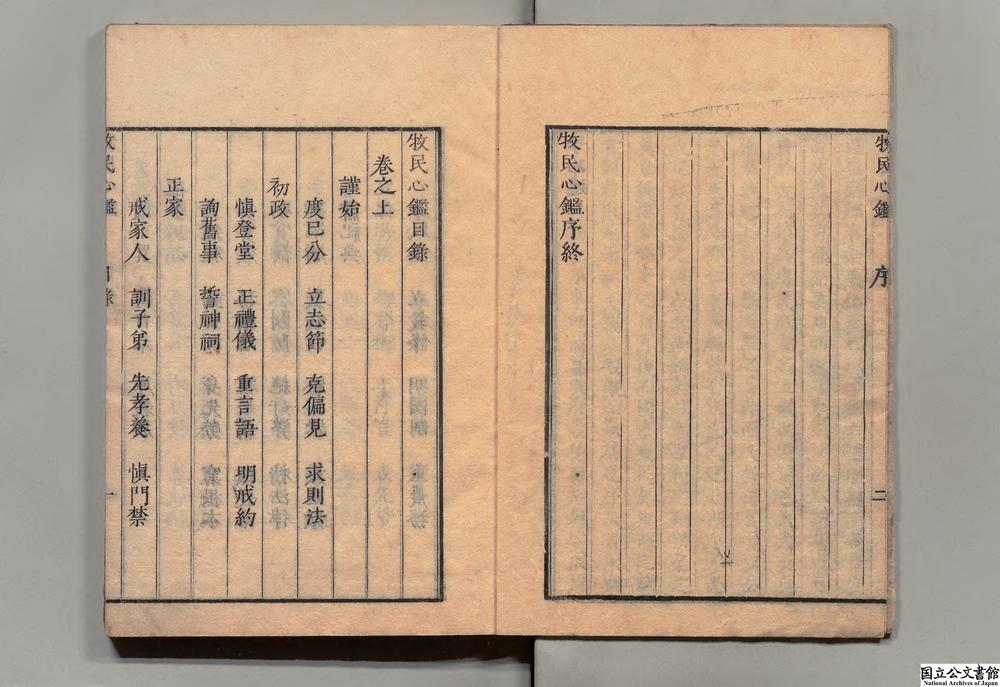 牧民心鑑
序
二
牧民心鑑序終
牧民心鑑目錄
卷之上
謹始
度已分 立志節 克偏見 求則法
初政
愼登堂 正禮儀 重言語 明戒約
詢舊事 誓神祠
正家
戒家人 訓子弟 先孝養 愼門禁
牧民心鑑
目錄
一
国立公文書館
National Archives of Japan